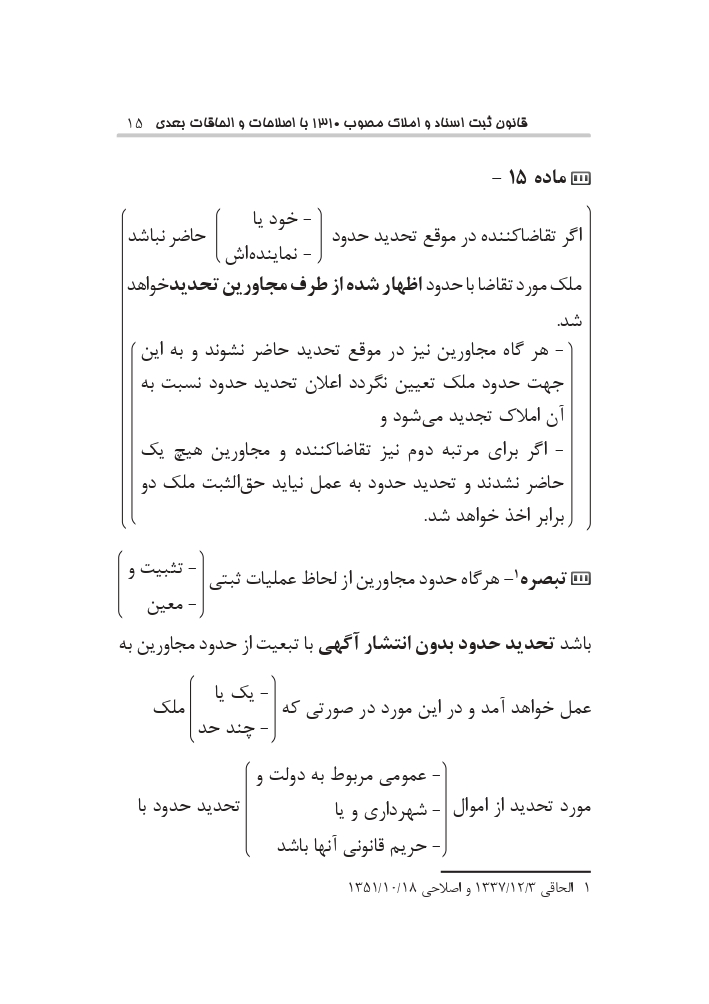 قانون ثبت اسناد و املاک مصوب ۱۳۱۰ با اصلاحات و الحاقات بعدی ۱۵
ماده ۱۵ -
اگر تقاضاکننده در موقع تحدید حدود
- خود یا
- نماینده‌اش
حاضر نباشد
ملک مورد تقاضا با حدود اظهار شده از طرف مجاورین تحدید خواهد
شد.
- هر گاه مجاورین نیز در موقع تحدید حاضر نشوند و به این
جهت حدود ملک تعیین نگردد اعلان تحدید حدود نسبت به
آن املاک تجدید می‌شود و
- اگر برای مرتبه دوم نیز تقاضاکننده و مجاورین هیچ یک
حاضر نشدند و تحدید حدود به عمل نیاید حق‌الثبت ملک دو
برابر اخذ خواهد شد.
تبصره۱- هرگاه حدود مجاورین از لحاظ عملیات ثبتی
- تثبیت و
- معین
باشد تحدید حدود بدون انتشار آگهی با تبعیت از حدود مجاورین به
عمل خواهد آمد و در این مورد در صورتی که
- یک یا
- چند حد
ملک
مورد تحدید از اموال
- عمومی مربوط به دولت و
- شهرداری و یا
- حریم قانونی آنها باشد
تحدید حدود با
۱ الحاقی ۱۳۳۷/۱۲/۳ و اصلاحی ۱۳۵۱/۱۰/۱۸